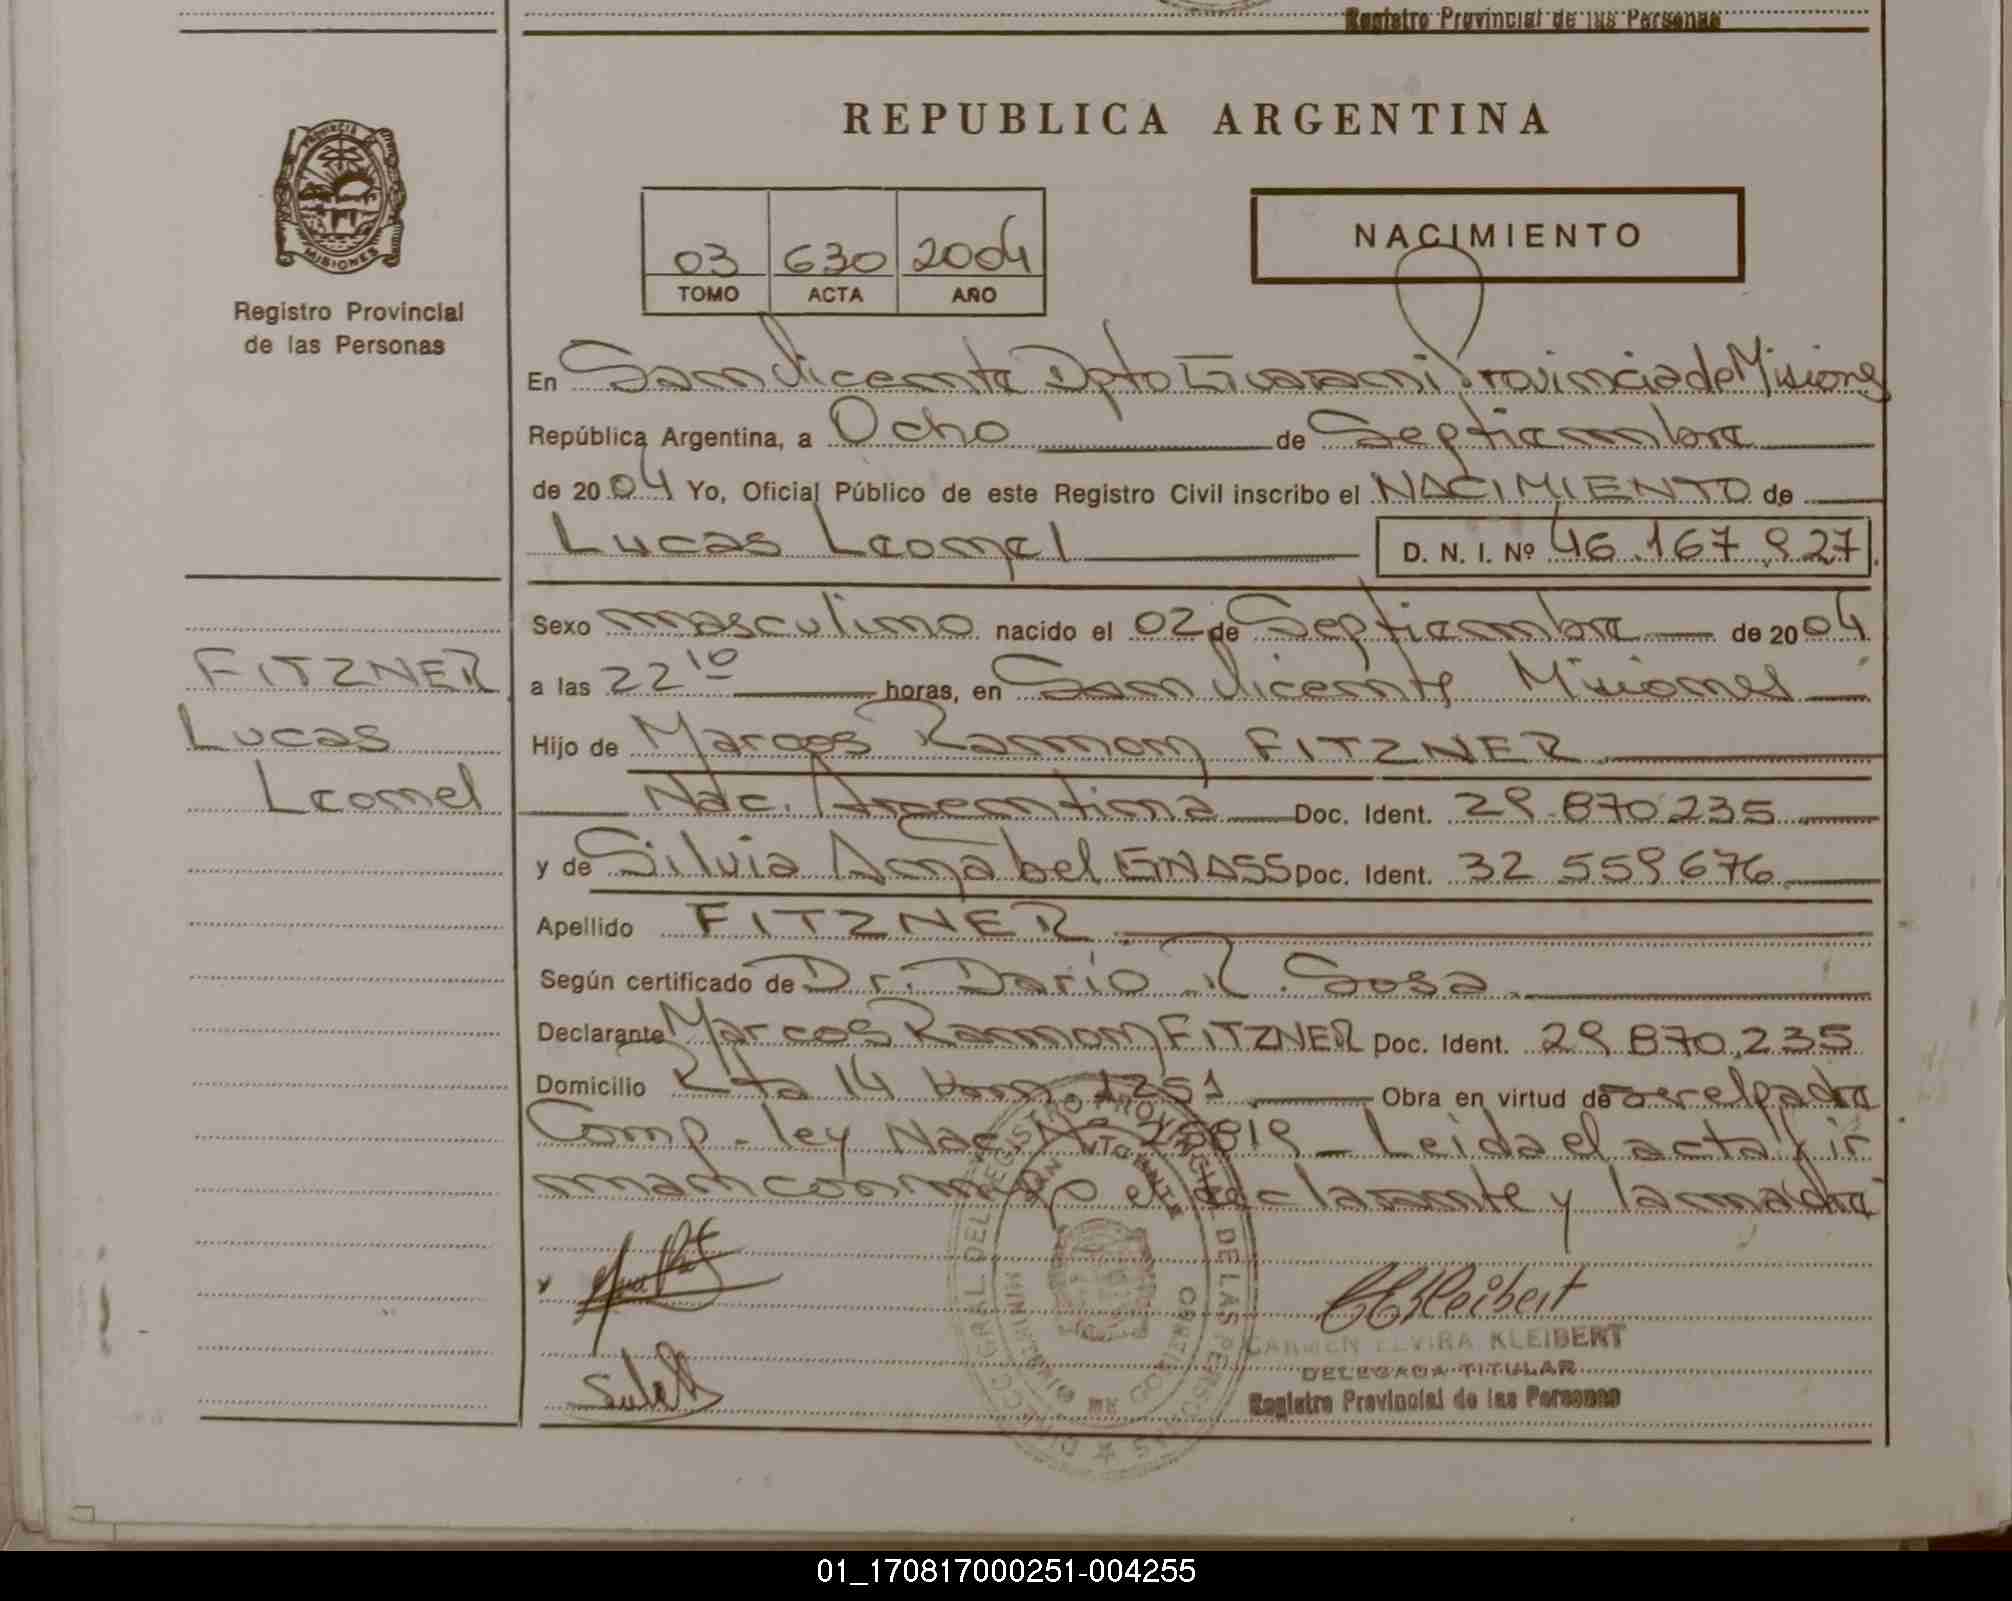 Registro Provincial de las Personas
REPUBLICA ARGENTINA
PROVINCIA DE
MISIONES
Registro Provincial
de las Personas
03 630 2004
TOMO ACTA AÑO
NACIMIENTO
En San Vicente Dpto Guarani Provincia de Misiones
República Argentina, a Ocho de Septiembre
de 2004 Yo, Oficial Público de este Registro Civil inscribo el NACIMIENTO de
Lucas Leonel D. N. I. Nº 46.167.927
Sexo masculino nacido el 02 de Septiembre de 2004
a las 22 10 horas, en San Vicente Misiones
Hijo de Marcos Ramon FITZNER
Nac. Argentina Doc. Ident. 29.870.235
y de Silvia Anabel GNASS Doc. Ident. 32 559 676
Apellido FITZNER
Según certificado de Dr. Dario R. Sosa
Declarante Marcos Ramon FITZNER Doc. Ident. 29 870.235
Domicilio Rta 14 km 1251 Obra en virtud de ser el padre
Comp. ley Nac. Nº 25819 - Leida el acta fir
man conmigo el declarante y la madre
FITZNER
Lucas
Leonel
CARMEN ELVIRA KLEIBERT
DELEGADA TITULAR
Registro Provincial de las Personas
DIRECC. GRAL. DEL REGISTRO PROVINCIAL DE LAS PERSONAS
SAN VICENTE
MINISTERIO DE GOBIERNO
01_170817000251-004255